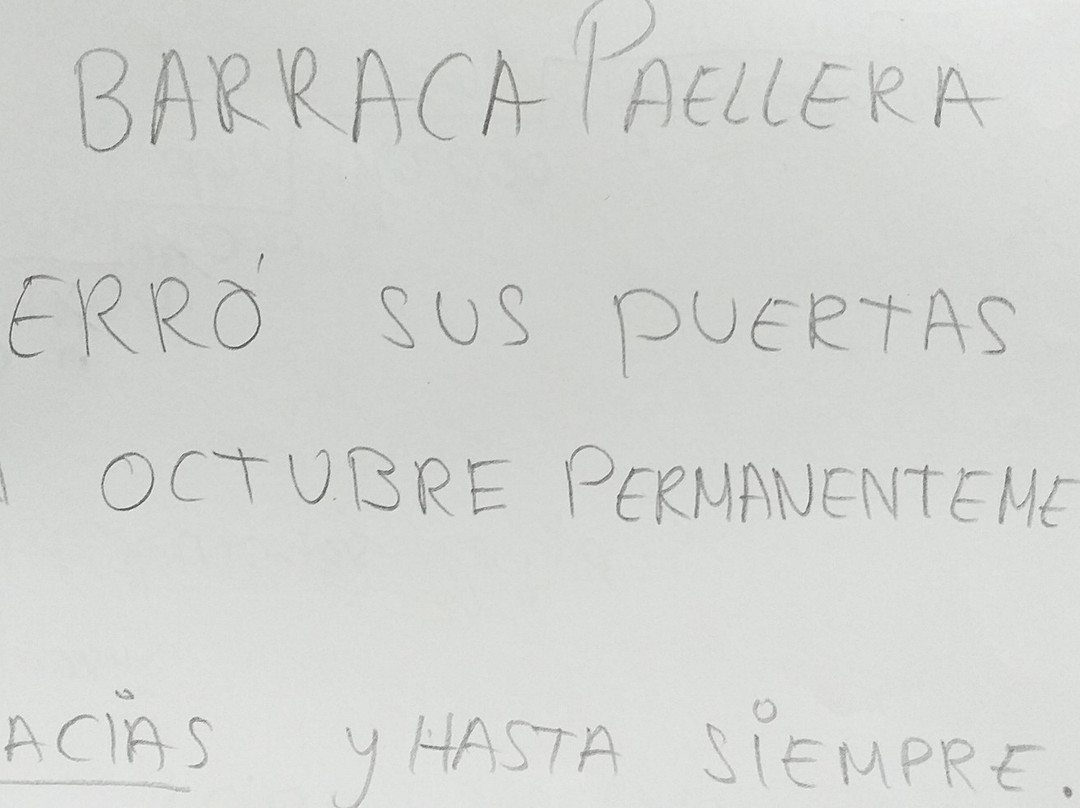 BARRACA PAELLERA
ERRÓ SUS PUERTAS
OCTUBRE PERMANENTEME
ACIAS y HASTA SIEMPRE.